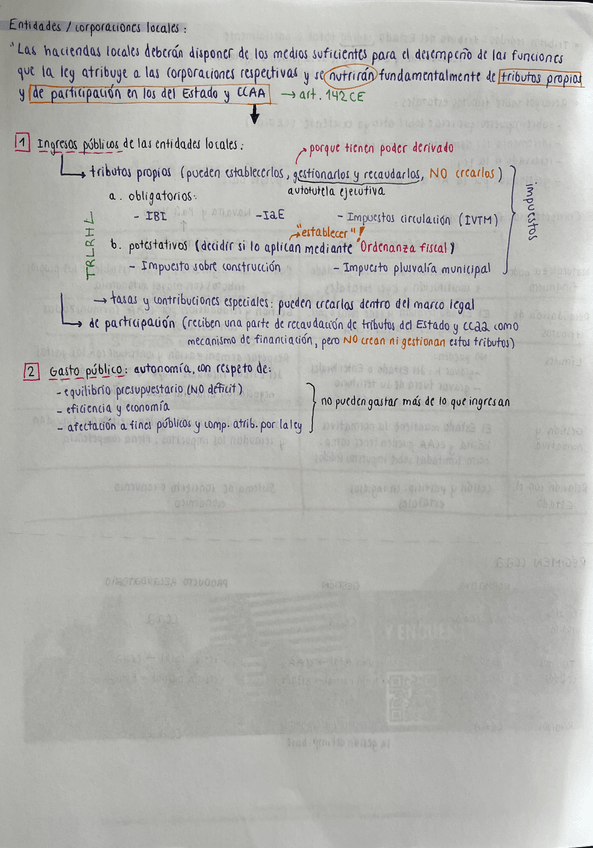 Entidades / corporaciones locales:
"Las haciendas locales deberán disponer de los medios suficientes para el desempeño de las funciones
que la ley atribuye a las corporaciones respectivas y se nutrirán fundamentalmente de tributos propios
y de participación en los del Estado y CCAA → art. 142 CE
1 Ingresos públicos de las entidades locales:
porque tienen poder derivado
→ tributos propios (pueden establecerlos, gestionarlos y recaudarlos, NO crearlos)
autotutela ejecutiva
a. obligatorios:
- IBI - IaE - Impuestos circulación (IVTM)
"establecer"
b. potestativos (decidir si lo aplican mediante "Ordenanza fiscal")
- Impuesto sobre construcción - Impuesto plusvalía municipal
impuestos
TRLRHL
→ tasas y contribuciones especiales: pueden crearlas dentro del marco legal
→ de participación (reciben una parte de recaudación de tributos del Estado y CCAA como
mecanismo de financiación, pero NO crean ni gestionan estos tributos)
2 Gasto público: autonomía, con respeto de:
- equilibrio presupuestario (NO déficit)
- eficiencia y economía
- afectación a fines públicos y comp. atrib. por la ley
no pueden gastar más de lo que ingresan